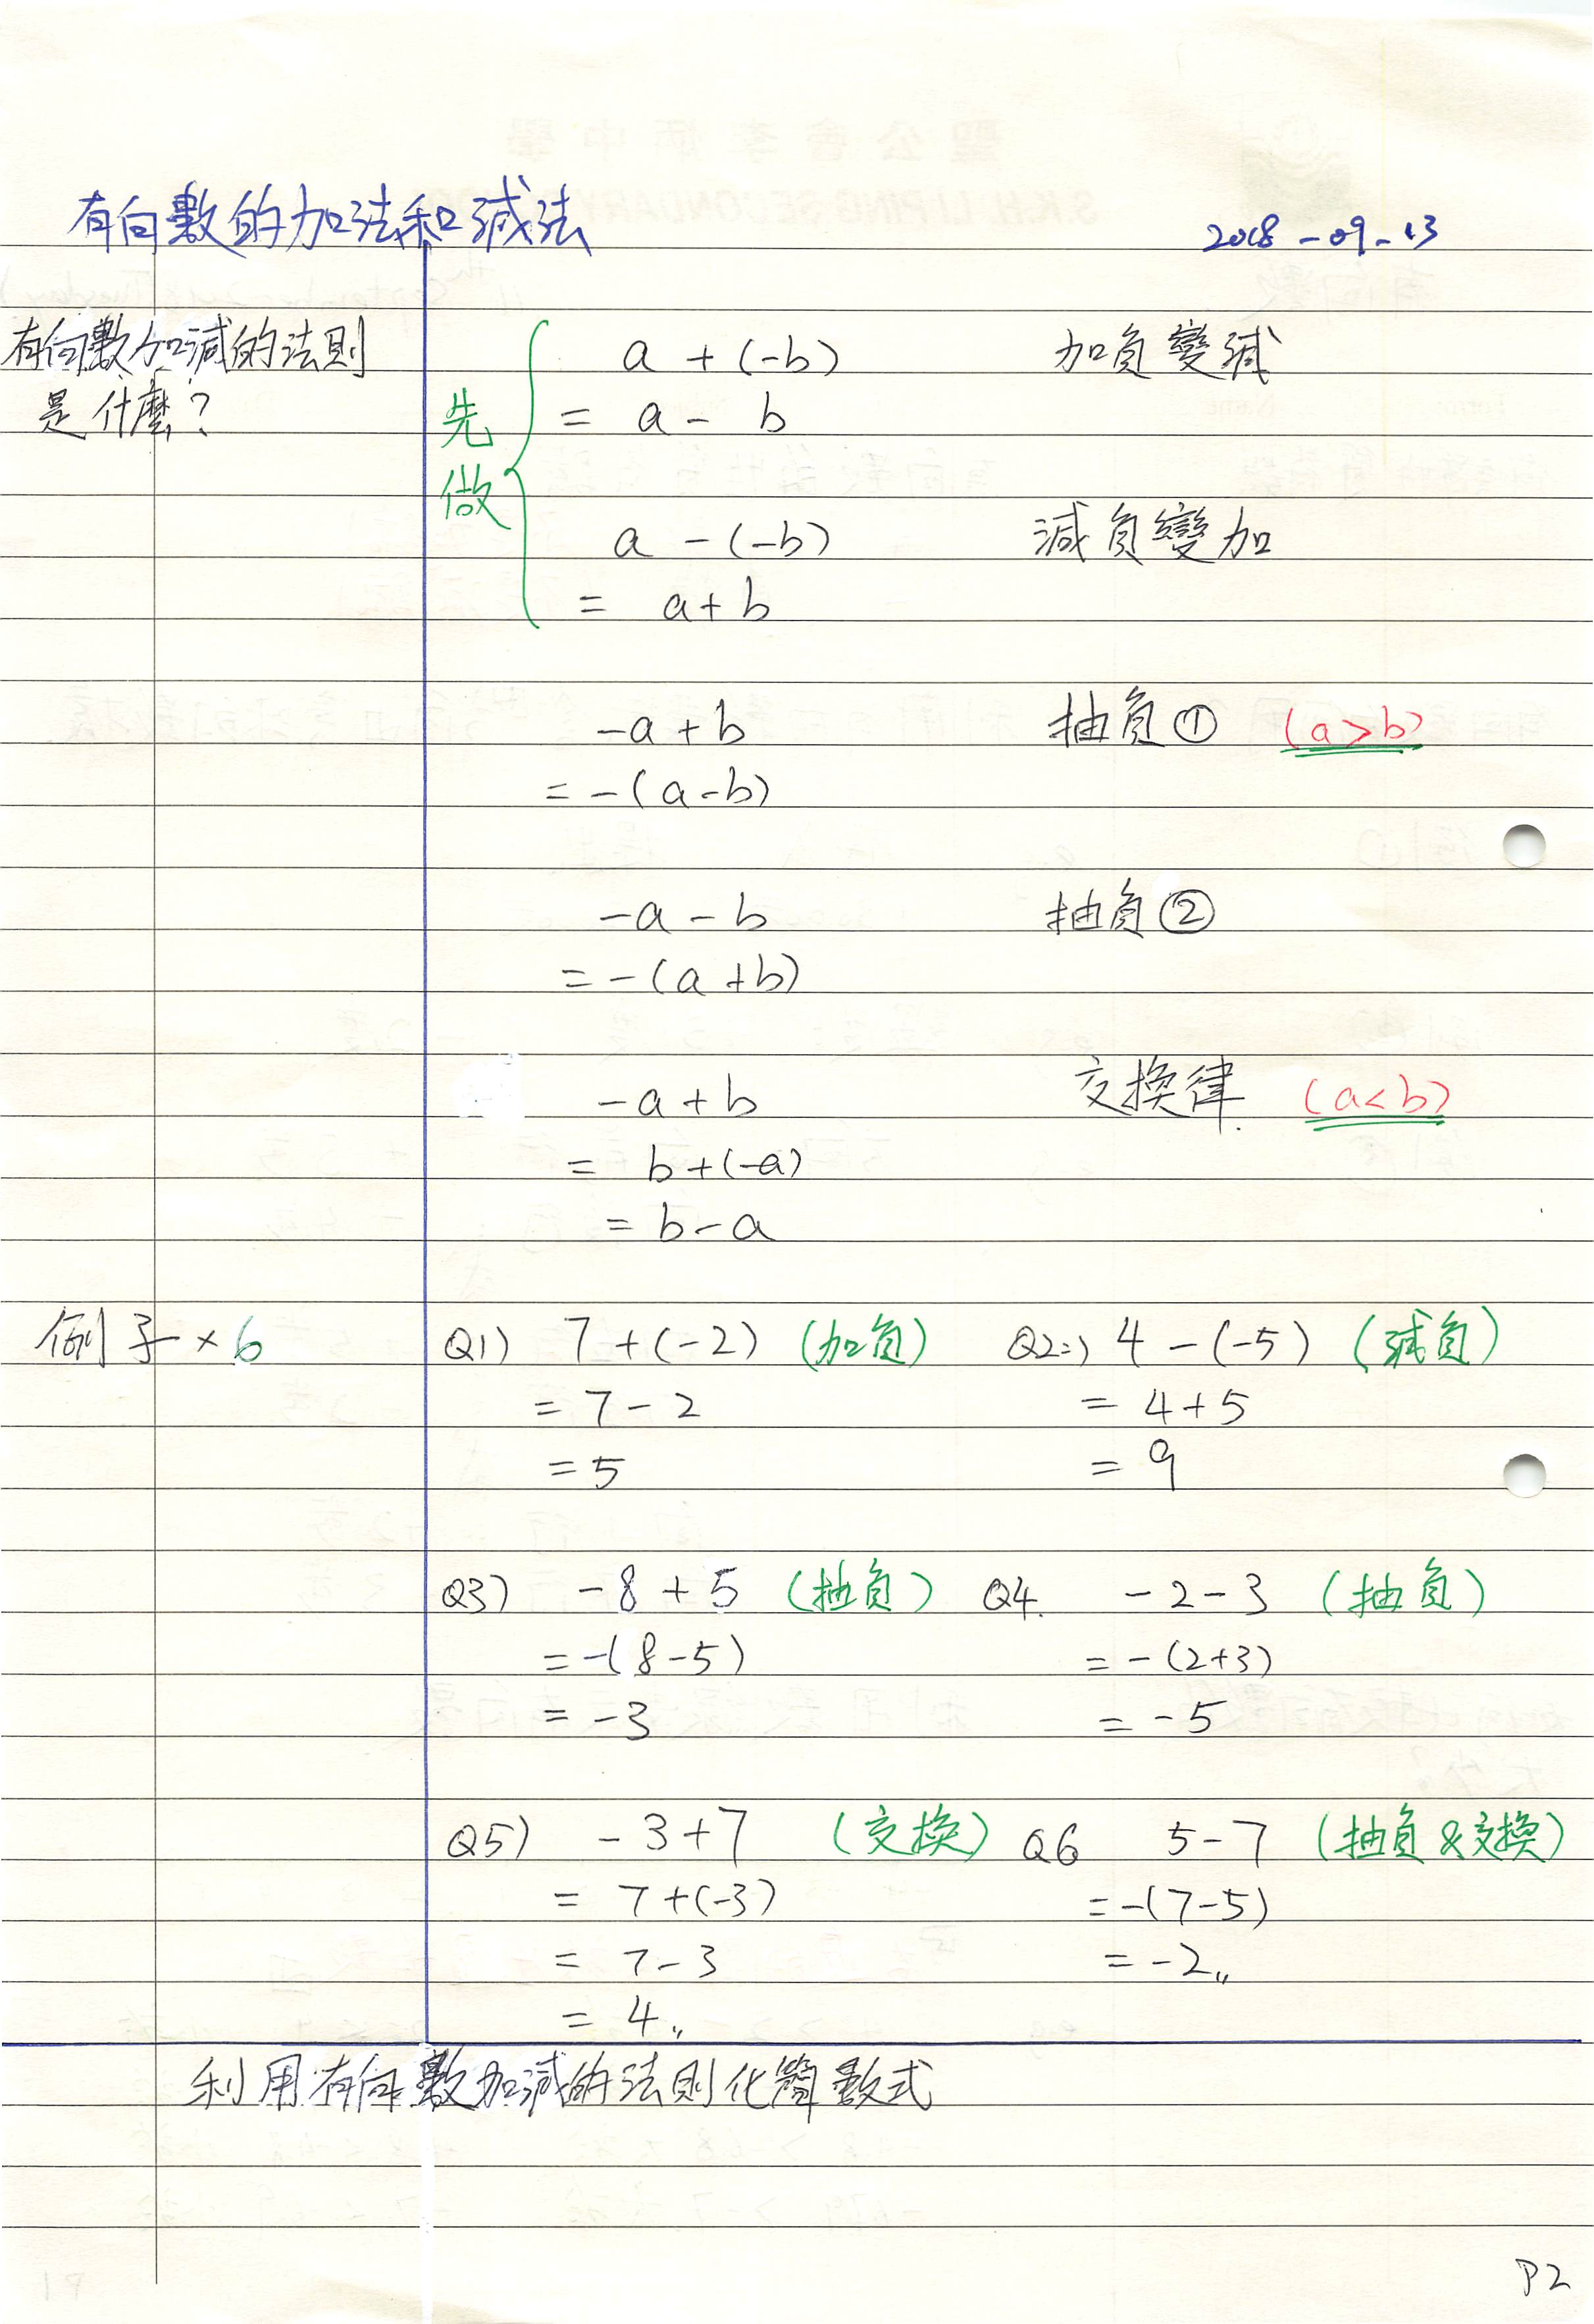 有向數的加法和減法 2018-09-13
有向數加減的法則
是什麼?
先做
a + (-b) 加負變減
= a - b
a - (-b) 減負變加
= a + b
-a + b 抽負① (a>b)
= -(a-b)
-a - b 抽負②
= -(a+b)
-a + b 交換律 (a<b)
= b+(-a)
= b-a
例子×6
Q1) 7+(-2) (加負) Q2:) 4-(-5) (減負)
= 7-2 = 4+5
= 5 = 9
Q3) -8+5 (抽負) Q4. -2-3 (抽負)
= -(8-5) = -(2+3)
= -3 = -5
Q5) -3+7 (交換) Q6 5-7 (抽負&交換)
= 7+(-3) = -(7-5)
= 7-3 = -2〃
= 4〃
利用有向數加減的法則化簡數式
P2